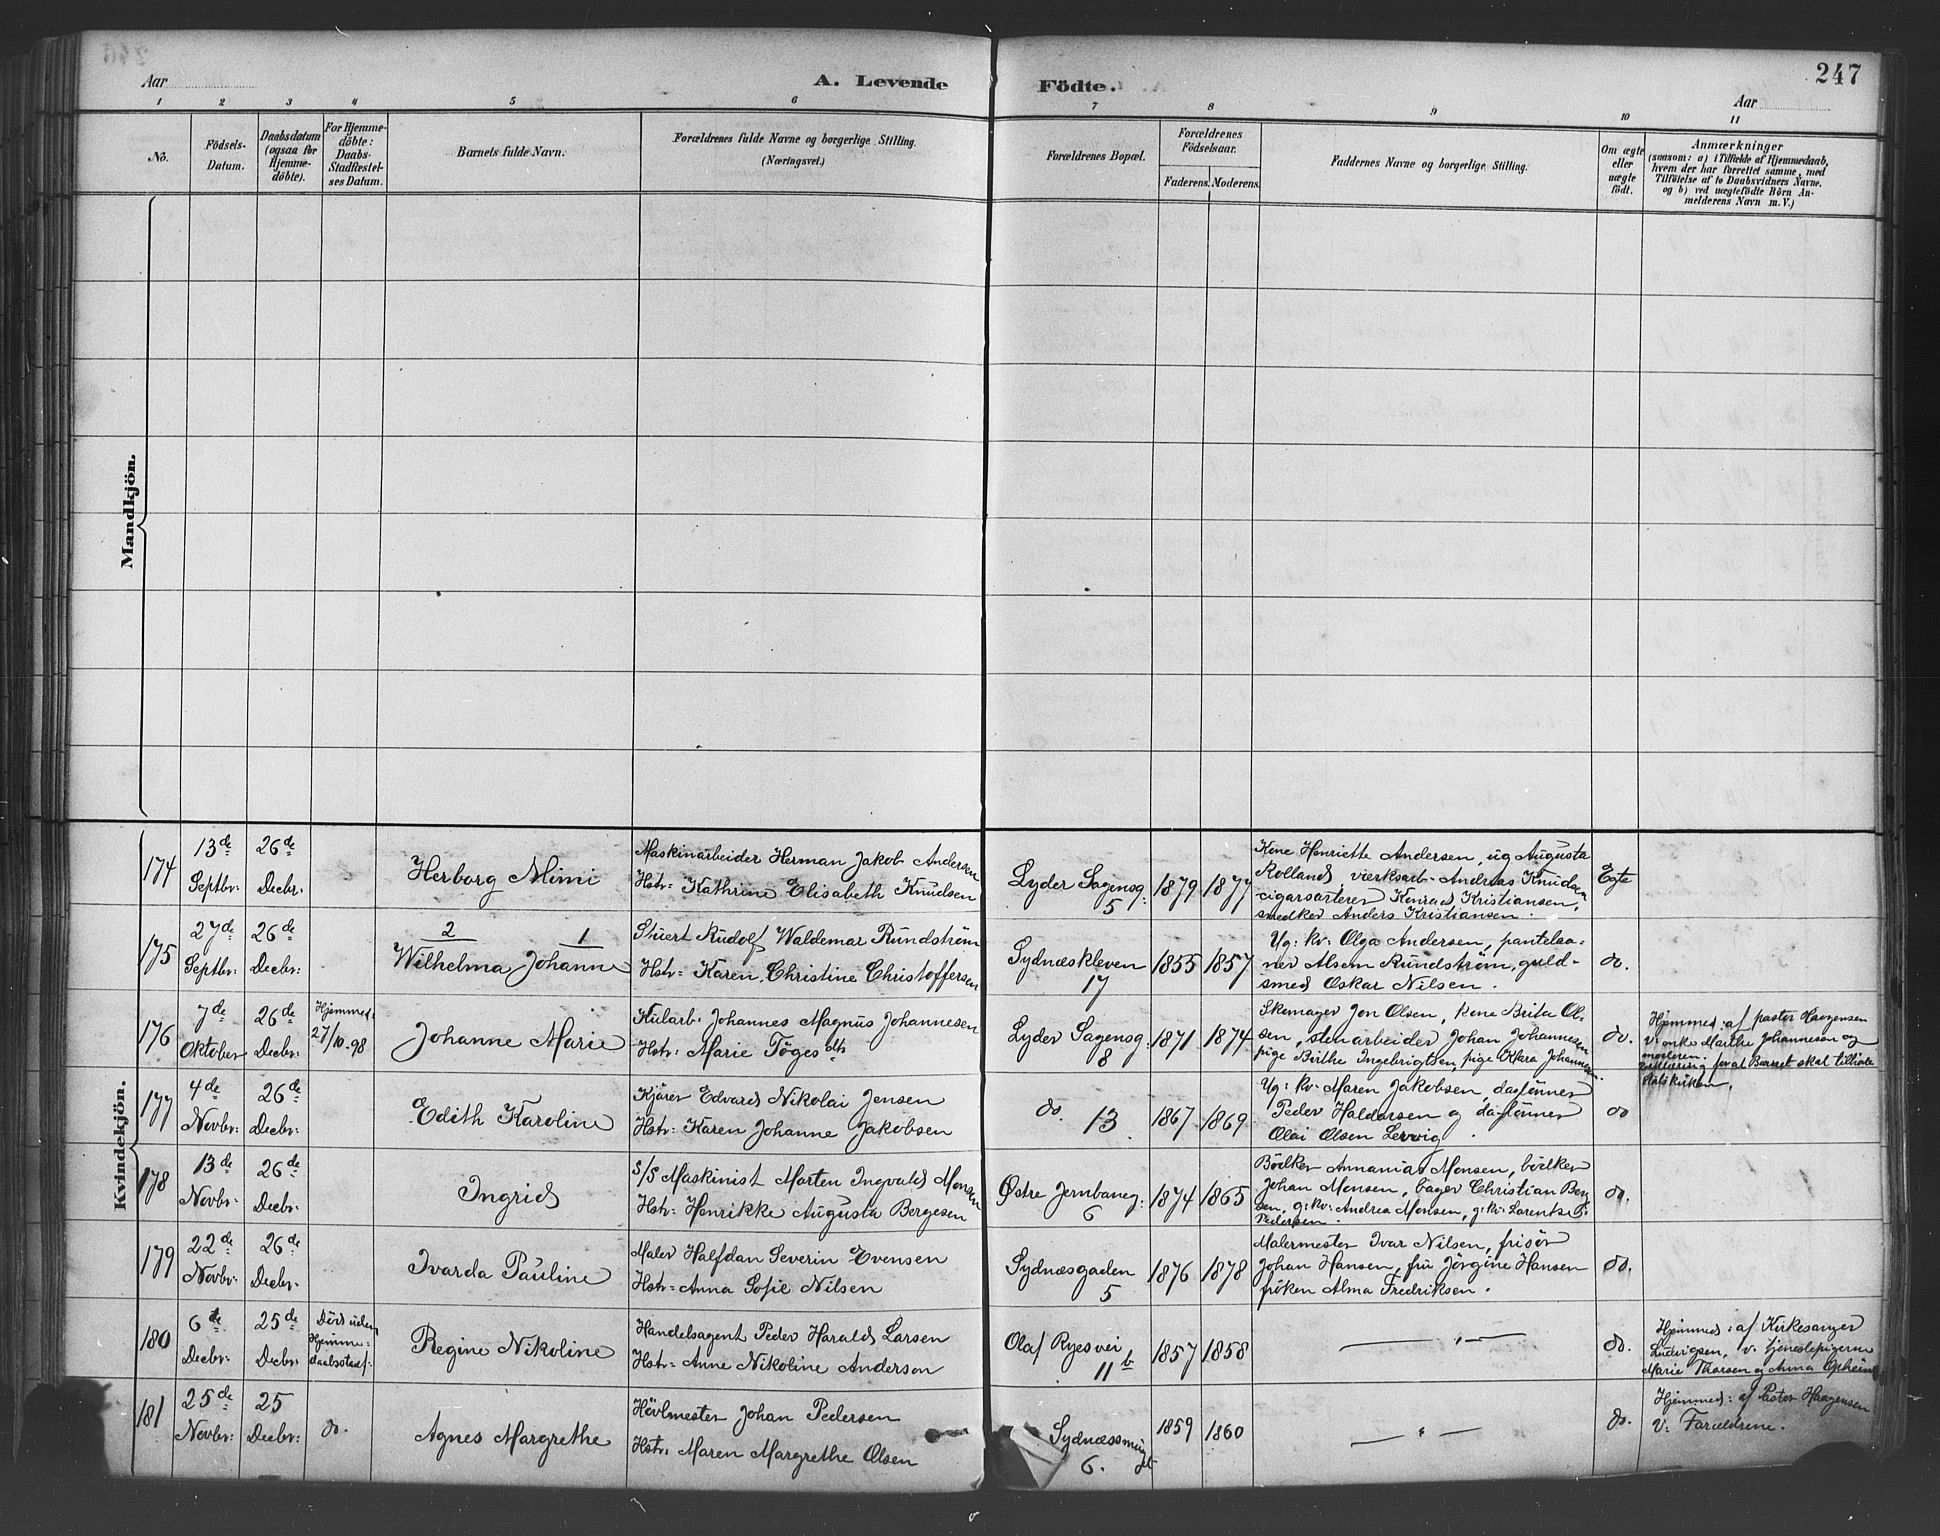 247
Aar
A. Levende Födte.
Aar
1 2 3 4 5 6 7 8 9 10 11
No.
Födsels-
Datum.
Daabsdatum
(ogsaa for
Hjemme-
döbte).
For Hjemme-
döbte:
Daabs-
Stadfæstel-
ses Datum.
Barnets fulde Navn.
Forældrenes fulde Navne og borgerlige Stilling.
(Næringsvei.)
Forældrenes Bopæl.
Forældrenes
Födselsaar.
Faderens. Moderens.
Faddernes Navne og borgerlige Stilling.
Om ægte
eller
uægte
födt.
Anmærkninger
(saasom: a) i Tilfælde af Hjemmedaab,
hvem der har forrettet samme, med
Tilföielse af to Daabsvidners Navne,
og b) ved uægtefödte Börn An-
melderens Navn m. V.)
Mandkjön.
Kvindekjön.
174
13de
Septbr:
26de
Decbr:
Herborg Mimi
Maskinarbeider Herman Jakob Andersen
Hstr: Kathrine Elisabeth Knudsen
Lyder Sagensg:
5
1879
1877
Kone Henriette Andersen, ug Augusta
Rolland, værksarb. Andreas Knudsen,
cigarsorterer Konrad Kristiansen,
smedker Anders Kristiansen.
Egte
175
27de
Septbr:
26de
Decbr:
2 1
Wilhelma Johanne
Stuert Rudolf Waldemar Rundström
Hstr: Karen Christine Christoffersen
Sydnæskleven
17
1855
1857
Ug: kv: Olga Andersen, pantelaa=
ner Alsem Rundström, guld-
smed Oskar Nilsen.
do.
176
7de
Oktober
26de
Decbr:
Hjemmed:
27/10-98
Johanne Marie
Kularb: Johannes Magnus Johannesen
Hstr: Marie Töges dtr
Lyder Sagensg:
8
1871
1874
Skomager Jon Olsen, kone Brita Ol-
sen, stenarbeider Johan Johannesen
pige Birthe Ingebrigtsen, pige Klara Johannesen.
do.
Hjemmed: af pastor Haagensen
v: enke Marthe Johannesen og
moderen.
Erklæring for at Barnet skal tilhöre
Statskirken.
177
4de
Novbr:
26de
Decbr:
Edith Karoline
Kjörer Edvard Nikolai Jensen
Hstr: Karen Johanne Jakobsen
do. 13.
1867
1869
Ug: kv: Maren Jakobsen, daglönner
Peder Haldorsen og daglönner
Olai Olsen Lervig.
do
178
13de
Novbr:
26de
Decbr:
Ingrid
S/S Maskinist Morten Ingvald Monsen
Hstr: Henrikke Augusta Bergesen
Østre Jernbaneg:
6
1874
1865
Bödker Annanias Monsen, bödker
Johan Monsen, bager Christian Berg
sen, g: kv: Andrea Monsen, g: kv: Lorentse
Pedersen.
do.
179
22de
Novbr:
26de
Decbr:
Ivarda Pauline
Maler Halfdan Severin Evensen
Hstr: Anna Sofie Nilsen
Sydnæsgaden
5
1876
1878
Malermester Ivar Nilsen, frisör
Johan Hansen, fru Jörgine Hansen
fröken Alma Fredriksen.
do.
180
6te
Decbr:
25de
Decbr:
Död uden
Hjemme-
daabsstadf:
Regine Nikoline
Handelsagent Peder Harald Larsen
Hstr: Anne Nikoline Anderson
Olaf Ryesvei
11b
1857
1858
do.
Hjemmed: af Kirkesanger
Ludvigsen, v: tjenestepigerne
Marie Thorsen og Anna Opheim
181
25de
Novbr:
25
Decbr:
do.
Agnes Margrethe
Hövlmester Johan Pedersen
Hstr: Maren Margrethe Olsen
Sydnæssmug
6. gt
1859
1860
do.
Hjemmed: af Pastor Haagensen
V: Forældrene.